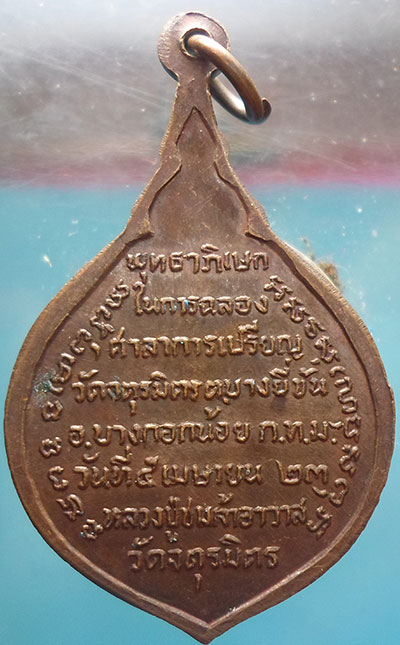 พุทธาภิเษก
ในการฉลอง
ศาลาการเปรียญ
วัดจตุรมิตร ต.บางยี่ขัน
อ.บางกอกน้อย ก.ท.ม.
วันที่ ๕ เมษายน ๒๓
หลวงปู่ เจ้าอาวาส
วัดจตุรมิตร